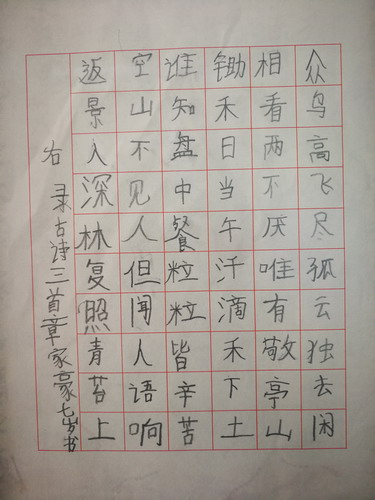 众鸟高飞尽孤云独去闲
相看两不厌唯有敬亭山
锄禾日当午汗滴禾下土
谁知盘中餐粒粒皆辛苦
空山不见人但闻人语响
返景入深林复照青苔上
右录古诗三首章家豪七岁书